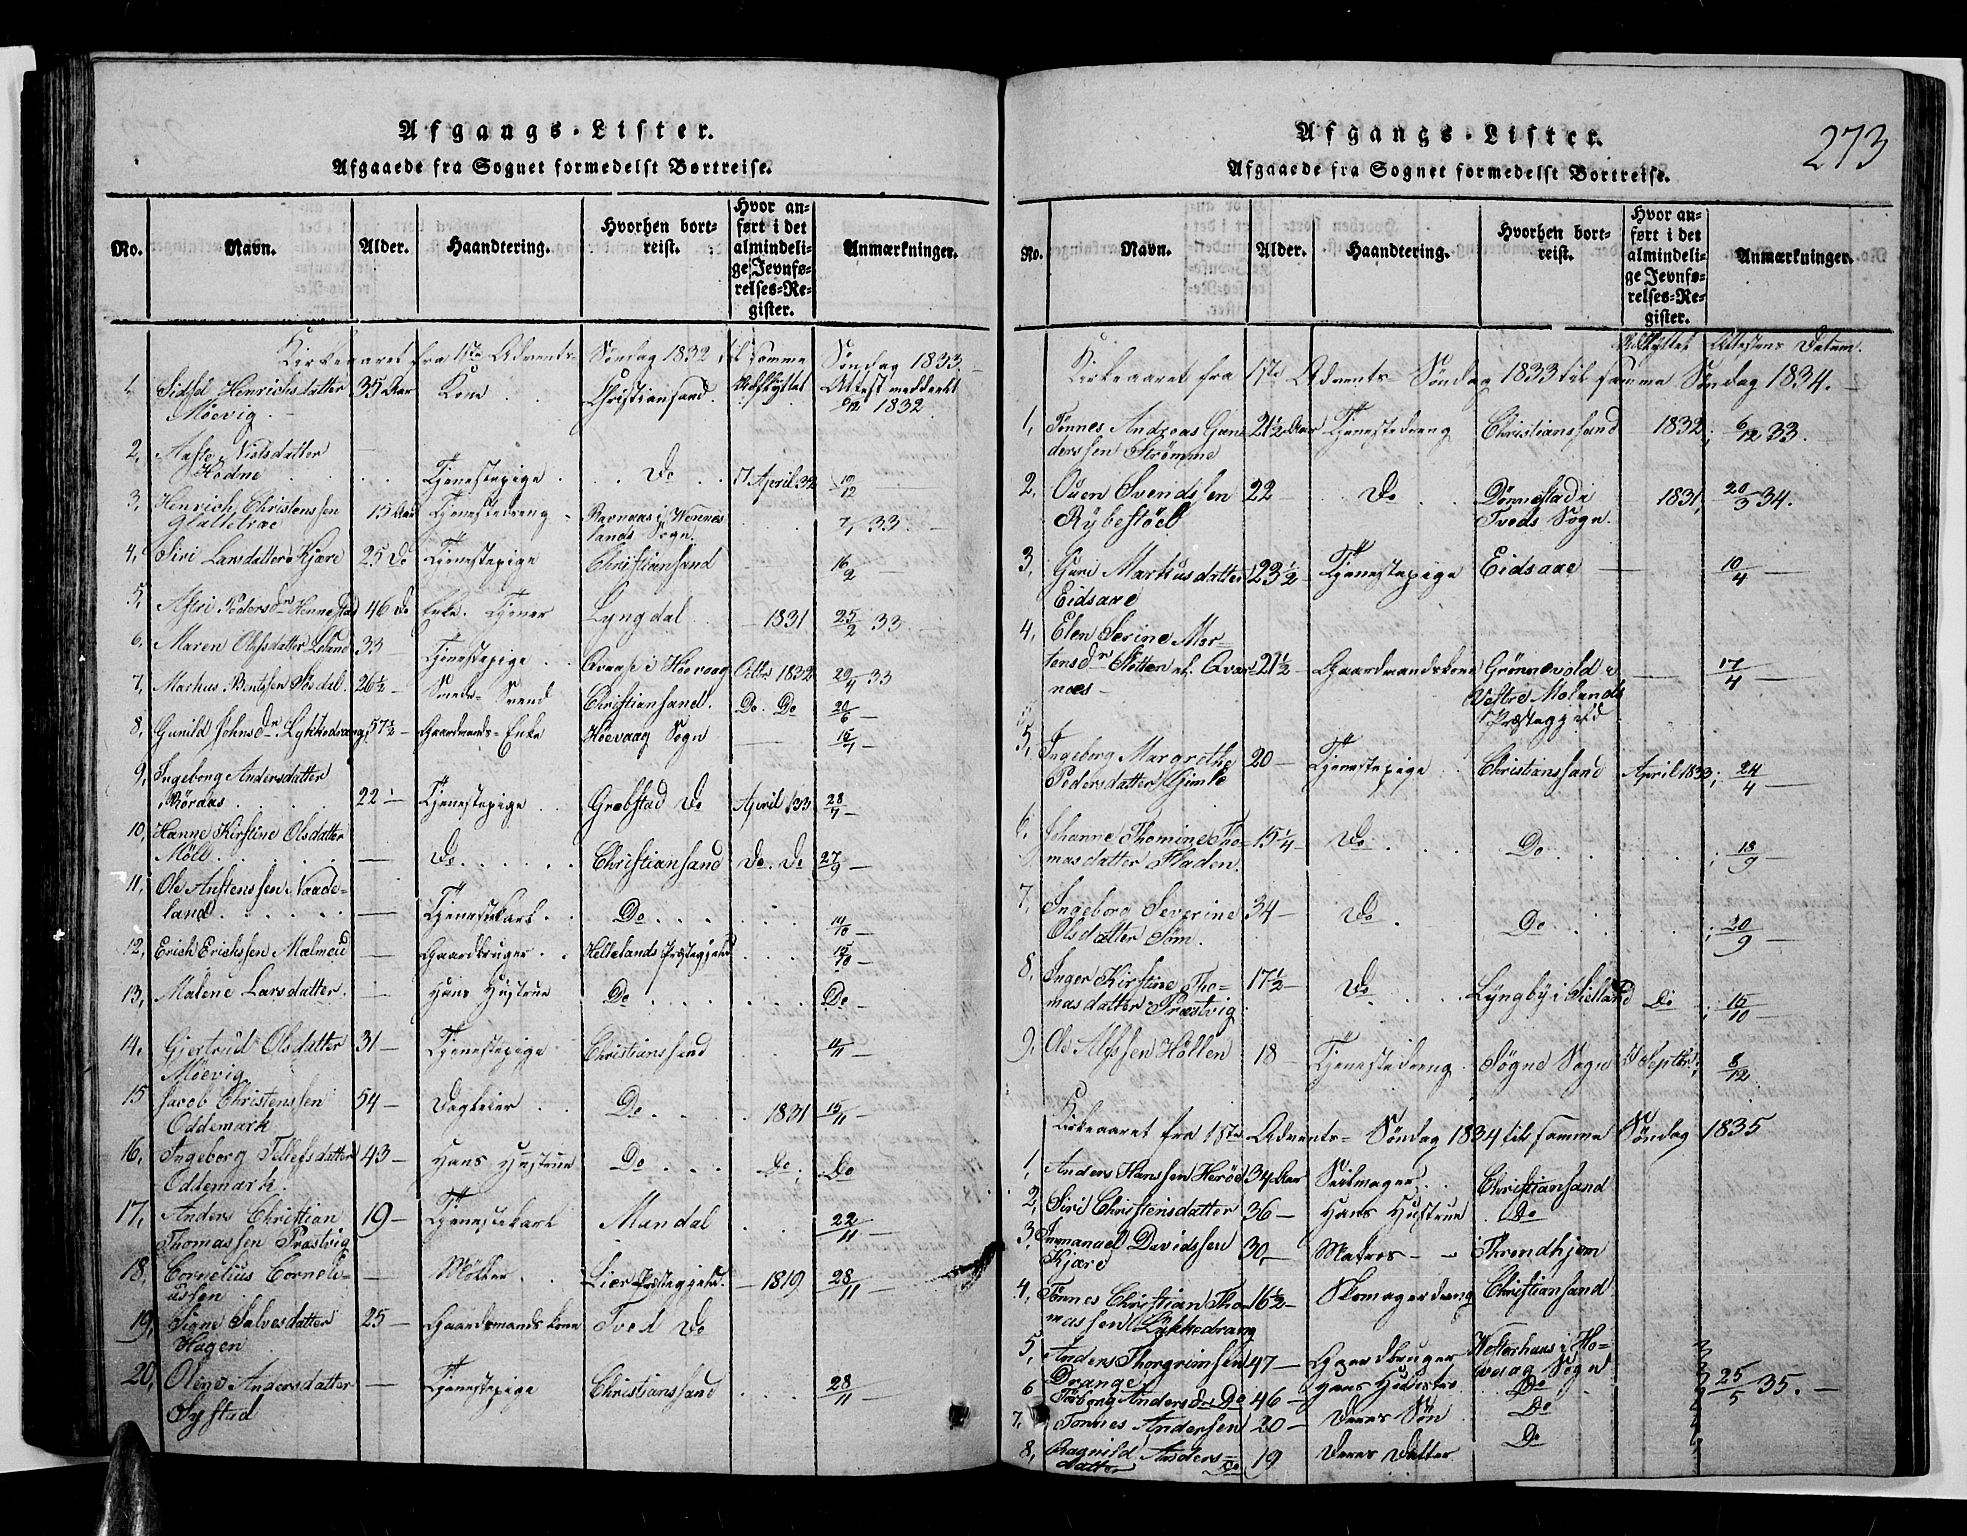 Afgangs-Lister.
Afgaaede fra Sognet formedelst Bortreise.
No. Navn. Alder. Haandtering. Hvorhen bortreist. Hvor anført i det almindelige Jevnførelses-Register. Anmærkninger.
Kirkeaaret fra 1ste Advents-Søndag 1832 til samme Søndag 1833.
1, Henrichsdatter Møevig. 35 Aar Kone Christiansand. Attest meddeelt 6/12 1832.
2, Nielsdatter Hodne Tjenestepige Do 17 April 32 10/12
3, Henrich Christenssen Glattetræ 15 Aar Tjenestedreng Ravnaas i Wennesland's Sogn. 7/1 33.
4, Siri Larsdatter Kjære 25 Do Tjenestepige Christiansand 16/2
5, Astri Peders Dr. Hennestad 46 Do Enke. Tjener Lyngdal 1831 25/2 33
6, Maren Olufsdatter 33 Tjenestepige i Høevaag 1832 29/4 33
7, Markus Bentssen 26½ Smede-Svend Christiansand. Do. Do 20/6
8, Gunild Johns Dr. Lykkedrang, 57½ Gaardmands-Enke Høevaag Sogn
9, Ingeborg Andersdatter Røraas 22 Tjenestepige Grebstad Do April 33 28/7
10, Hanne Kirstine Olsdatter Möll. Do. Christiansand Do. Do 27/9
11, Ole Anstenssen Naadeland Tjenestekarl Do.
12, Erich Erichssen Malmeid Gaardbruger Hellelands Præstegjeld 15/10
13, Malene Larsdatter. Hans Hustrue Do Do
14. Gjertrud Olsdatter Møevig 31 Tjenestepige Christianssand
15 Jacob Christenssen Oddemark 54 Dagleier Do. 1831 15/11
16, Ingeborg Tellefsdatter Oddemark. 43 Hans Hustrue Do. Do. Do
17, Anders Christian Thomassen Præstvig 19 Tjenestekarl Mandal 22/11
18, Cornelius Corneliussen Møller Lier Præstegjeld. 1819 28/11
19, Signe Salvesdatter Hagen 25 Gaardmands kone Tved Do
20, Olene Andersdatter Tjenestepige Christianssand 28/11
273
Afgangs-Lister.
Afgaaede fra Sognet formedelst Bortreise.
No. Navn. Alder. Haandtering. Hvorhen bortreist. Hvor anført i det almindelige Jevnførelses-Register. Anmærkninger.
Attestens Datum.
Kirkeaaret fra 1ste Advents-Søndag 1833 til samme Søndag 1834.
1, Tønnes Andreas Gunderssen Strømme 21½ Aar Tjenestedreng Christianssand 1832; 6/12 33.
2, Ouen Svendssen Rybestöel 22 Do Dønnestad i Tveds Sogn. 1831, 20/3 34.
3, Guri Markusdatter Eidsaae 23½ Tjenestepige Eidsaae 10/4
4, Elen Serine Mortens Dr. 21½ Gaardmandskone Grønnevold i Vestre Molands Præstegjeld 17/4
5, Ingeborg Margrethe Pedersdatter Gimle 20 Tjenestepige Christianssand April 1833; 24/4
6, Johanne Thomine Thomasdatter Fladen. 15¼ Do. Do 18/9
7, Ingeborg Severine Olsdatter Søm. 34 Do Do 20/9
8, Inger Kirstine Thomasdatter Præstvig 17½ Do Lyngby i Sielland Do 15/10
9, Ole Alfssen Hollen 18 Tjenestedreng Søgne Sogn Septbr. 8/12
Kirkeaaret fra 1ste Advents-Søndag 1834 til samme Søndag 1835
1, Anders Hanssen Herøe 34 Aar Seilmager Christiansand
2, Siri Christensdatter 36 Hans Hustrue Do
3, Immanael Davidssen Kjære 30, Matros Throndhjem
4, Tønnes Christian Thomassen Lykkedrang 16½ Skomagerdreng Christiansand
5, Anders Thorgrimsen Drange 47 Gaardbruger Westerhuus i Hovaag Sogn
6 Anders Dr. Do 46 Hans Hustrue Do 25/5 35.
7, Tønnes Andersen 20 Deres Søn Do
8, Ragnild Andersdatter Do 19 Deres Datter Do